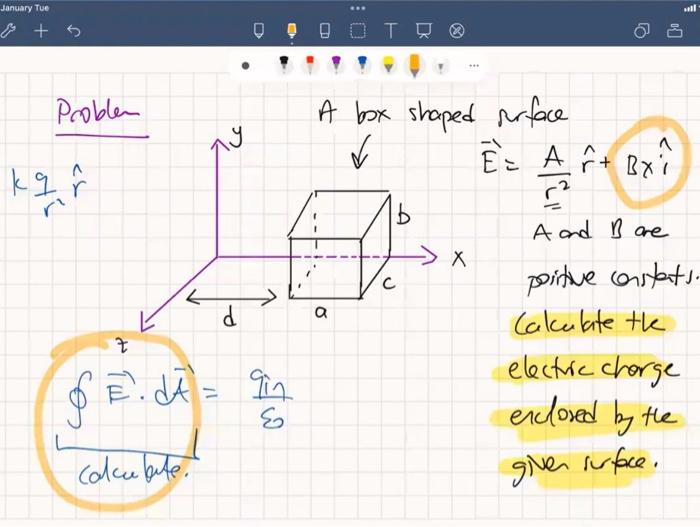 January Tue
Problem
A box shaped surface
y
E = A/r² r̂ + Bx î
k q/r² r̂
b
A and B are
x
positive constants.
c
d
a
z
Calculate the
electric charge
enclosed by the
given surface.
∮ E⃗ · dA⃗ = qin/ε₀
calculate.